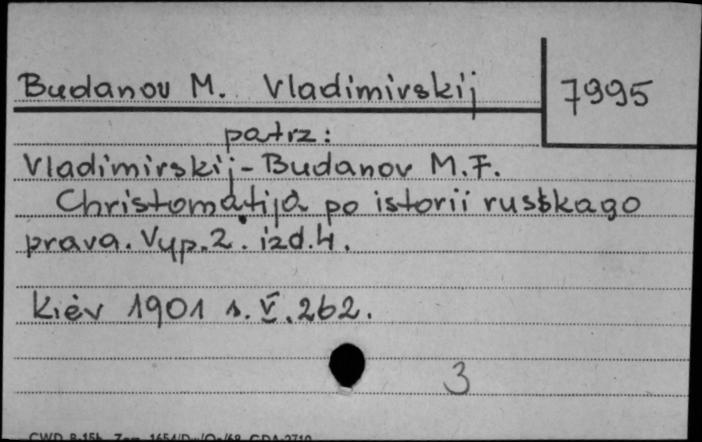 Budanov M. Vladimirskij
7995
patrz:
Vladimirskij-Budanov M.F.
Christomatija po istorii russkago
prava. Vyp.2. izd.4.
Kiev 1901 s. V. 262.
3